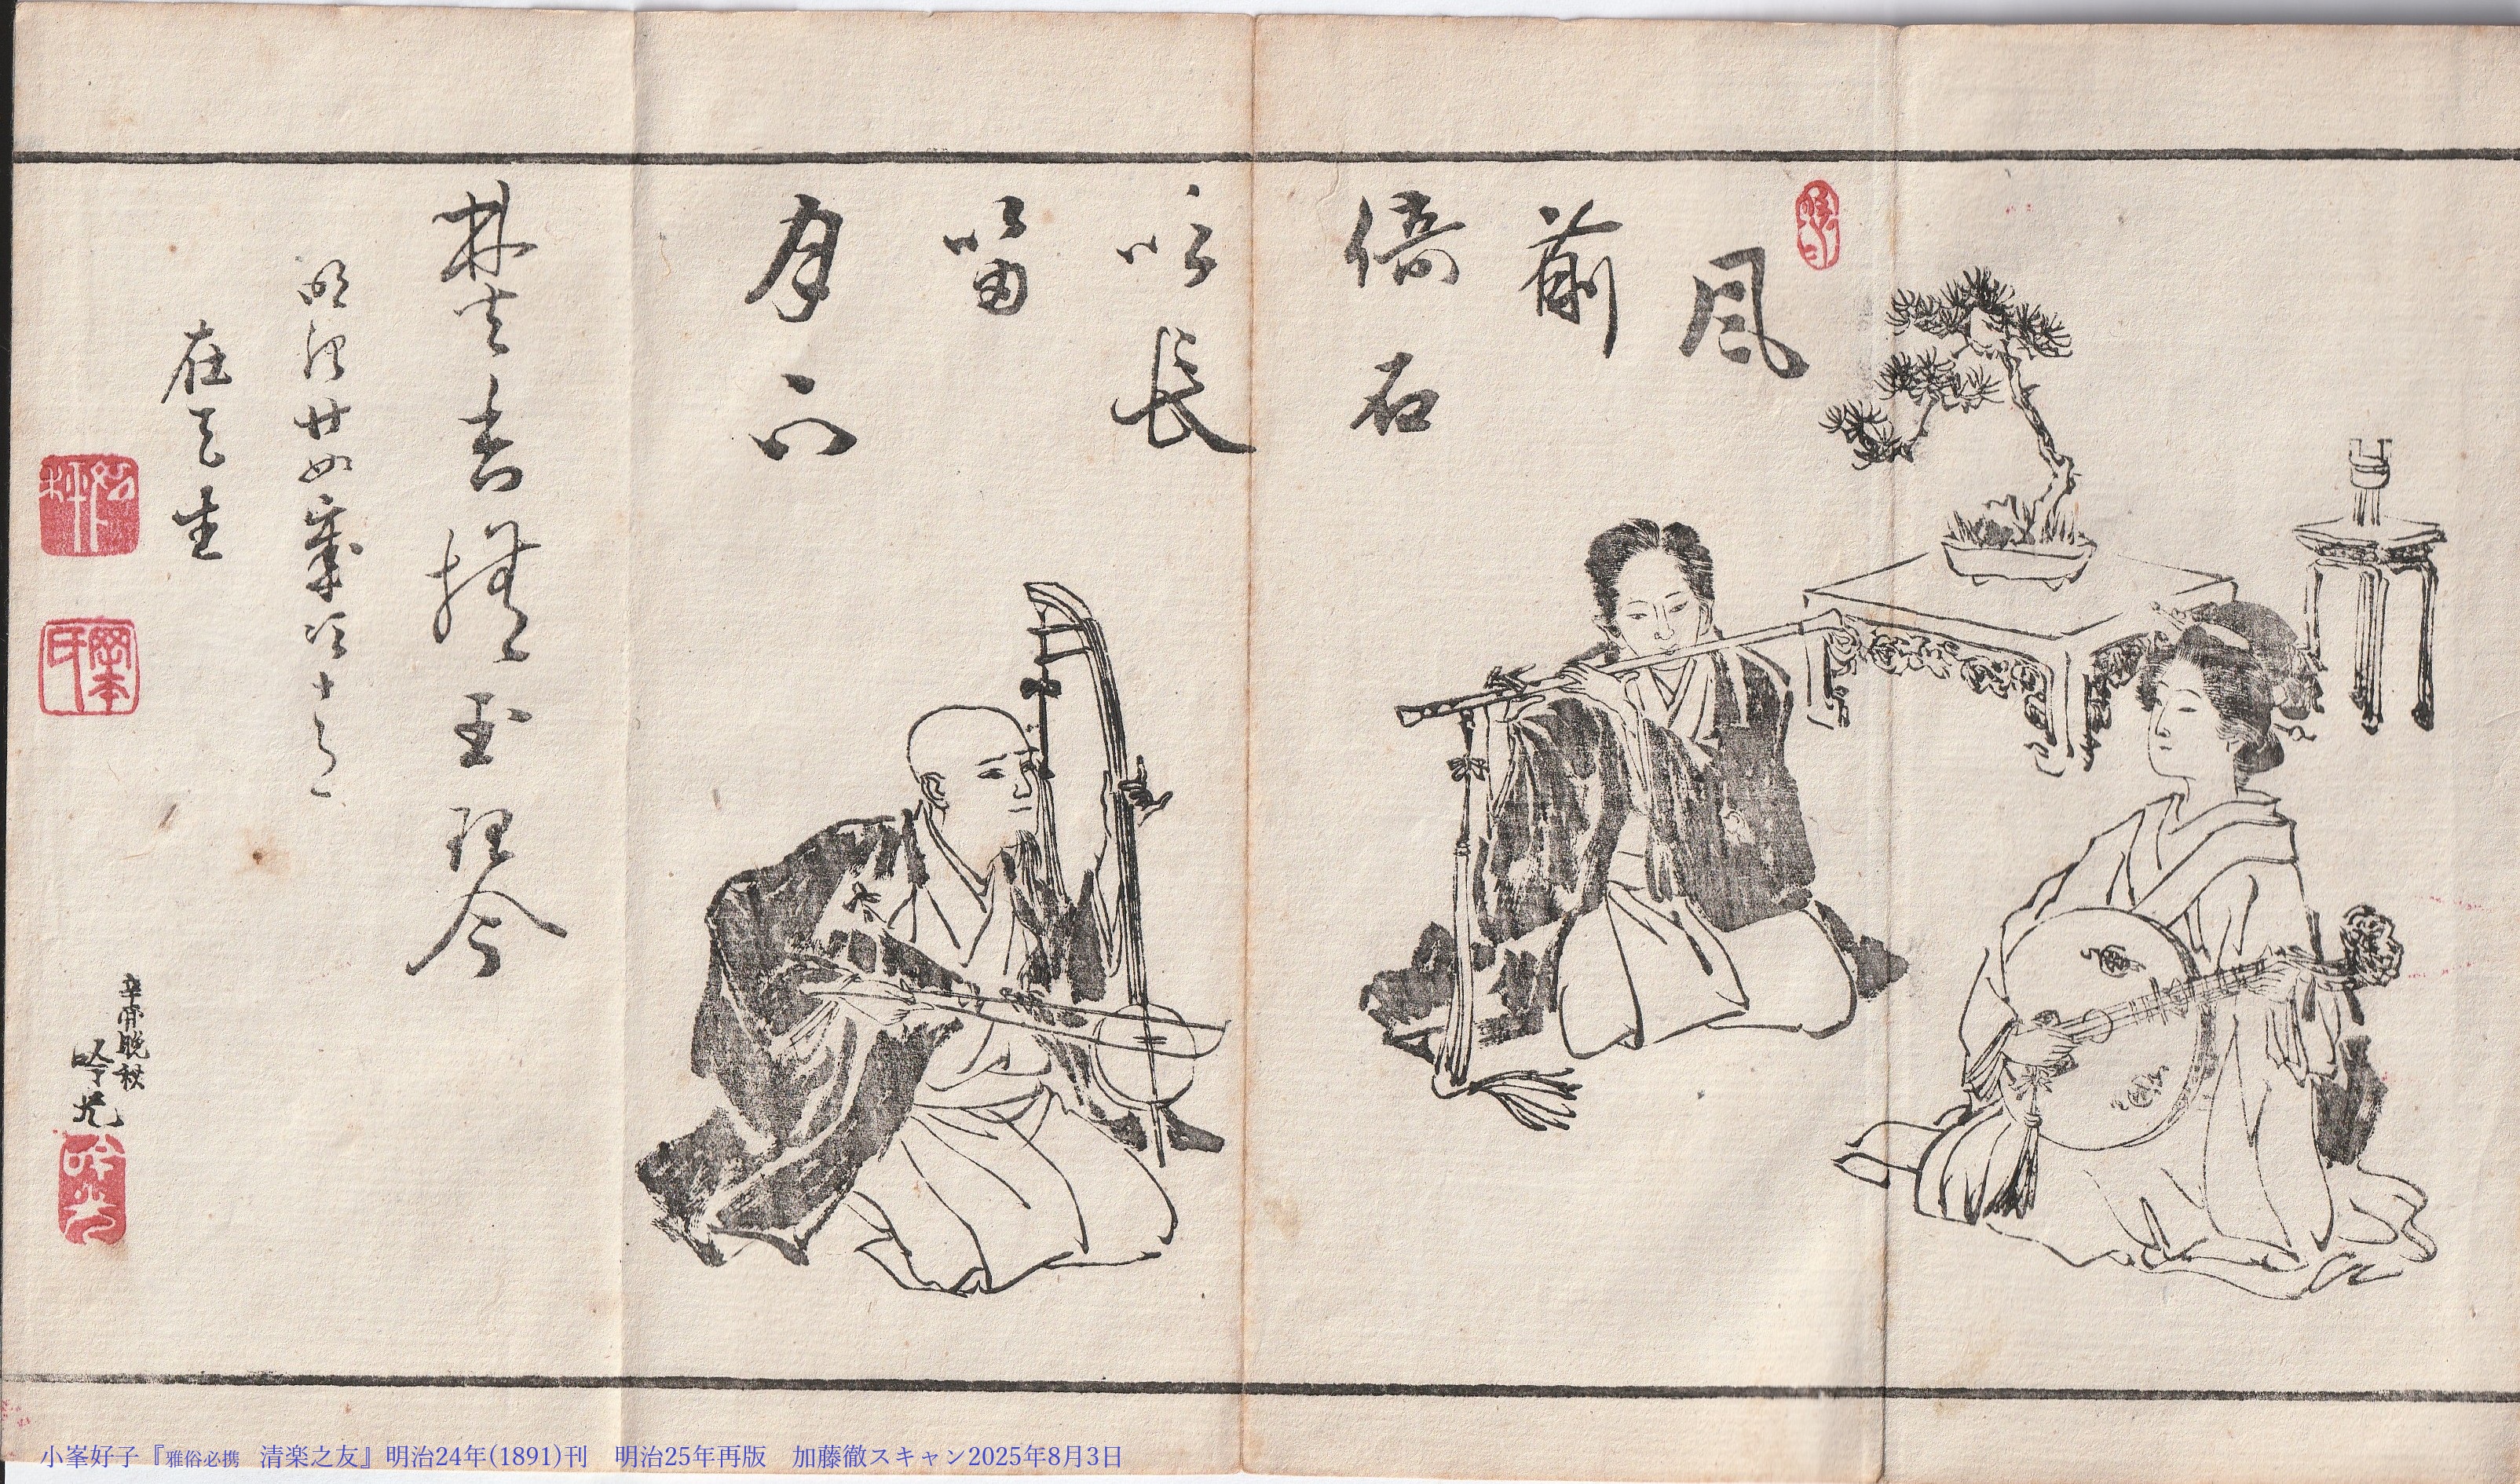 風
前
倚石
吹長
笛
月下
焚香撫玉琴
明治廿四歳
辛卯晩秋
吟光
吟光
岡本氏
小峯好子『雅俗必携　清楽之友』明治24年(1891)刊　明治25年再版　加藤徹スキャン2025年8月3日